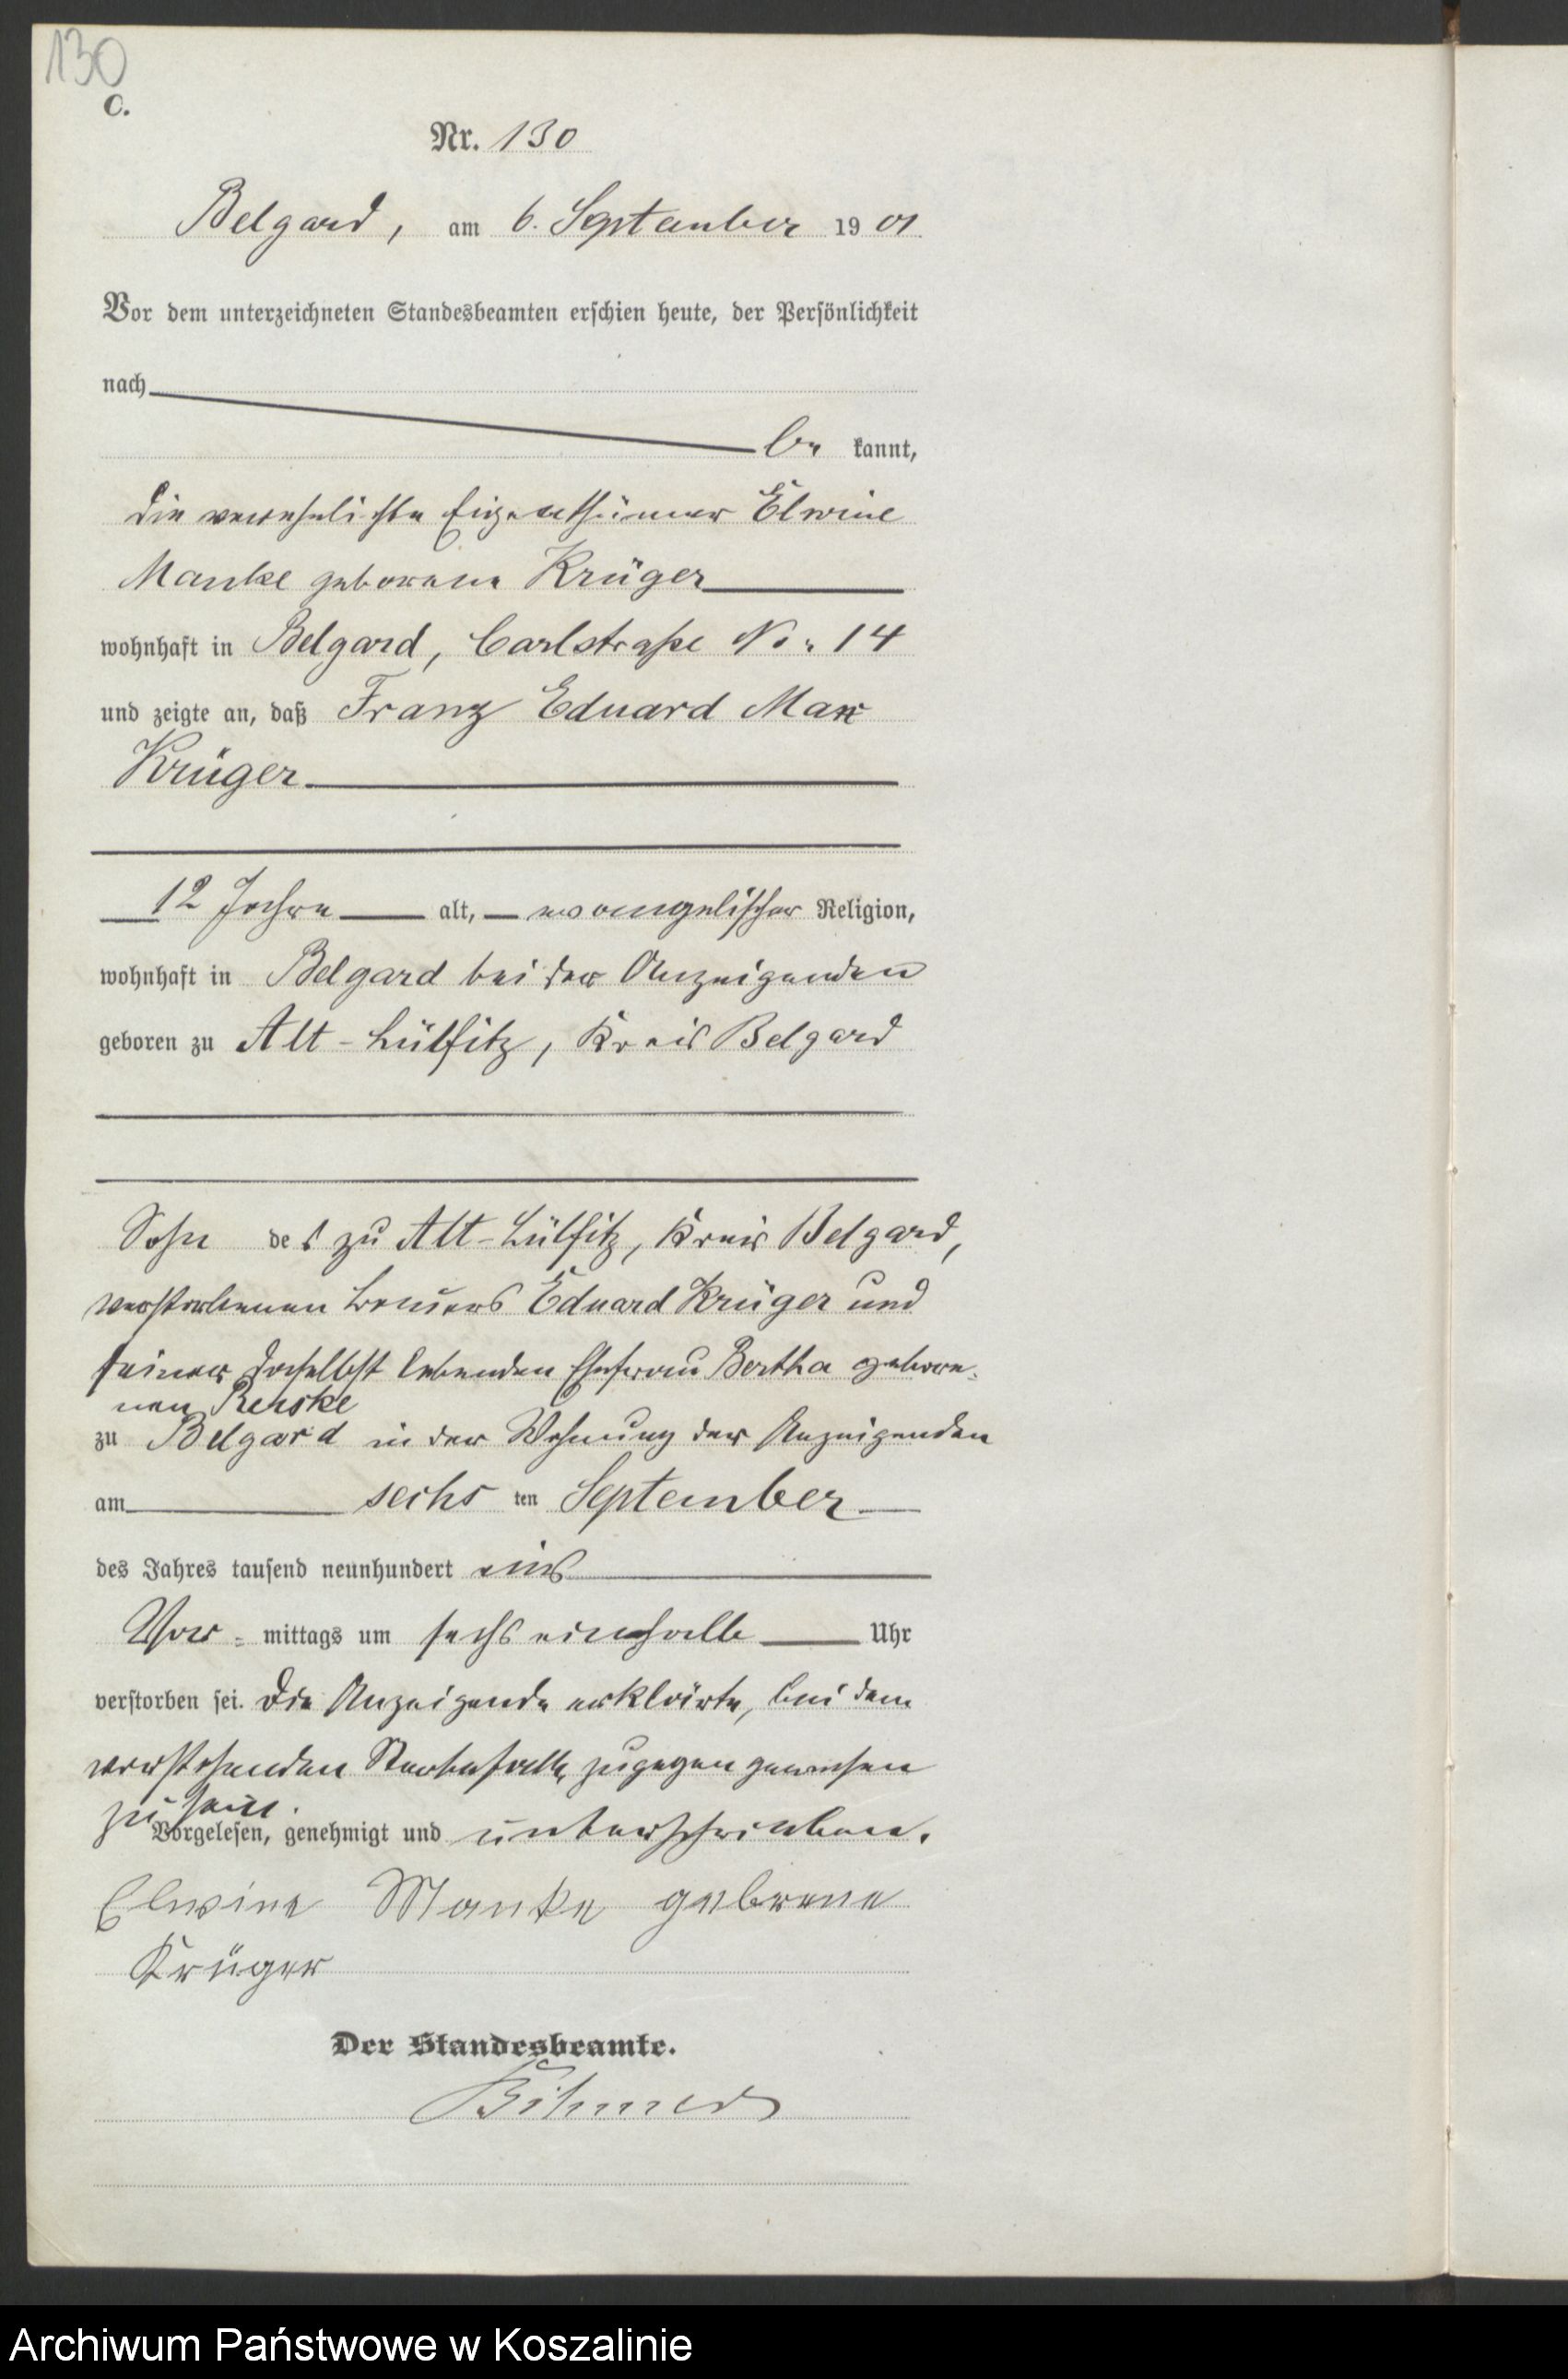 130
C.
Nr. 130
Belgard, am 6. September 1901
Vor dem unterzeichneten Standesbeamten erschien heute, der Persönlichkeit
nach
be kannt,
die verehelichte Eigenthümer Elwine
Manke geborene Krüger
wohnhaft in Belgard, Carlstraße No. 14
und zeigte an, daß Franz Eduard Max
Krüger
12 Jahre alt, evangelischer Religion,
wohnhaft in Belgard bei der Anzeigenden
geboren zu Alt-Lülfitz, Kreis Belgard
Sohn des zu Alt-Lülfitz, Kreis Belgard,
verstorbenen Bauers Eduard Krüger und
seiner daselbst lebenden Ehefrau Bertha gebore-
nen
zu Belgard in der Wohnung der Anzeigenden
am sechs ten September
des Jahres tausend neunhundert eins
Vor- mittags um sechs einhalb Uhr
verstorben sei. Die Anzeigende erklärte, bei dem
vorstehenden Sterbefalle zugegen gewesen
zu sein.
Vorgelesen, genehmigt und unterschrieben.
Elwine Manke geborene
Krüger
Der Standesbeamte.
Archiwum Państwowe w Koszalinie